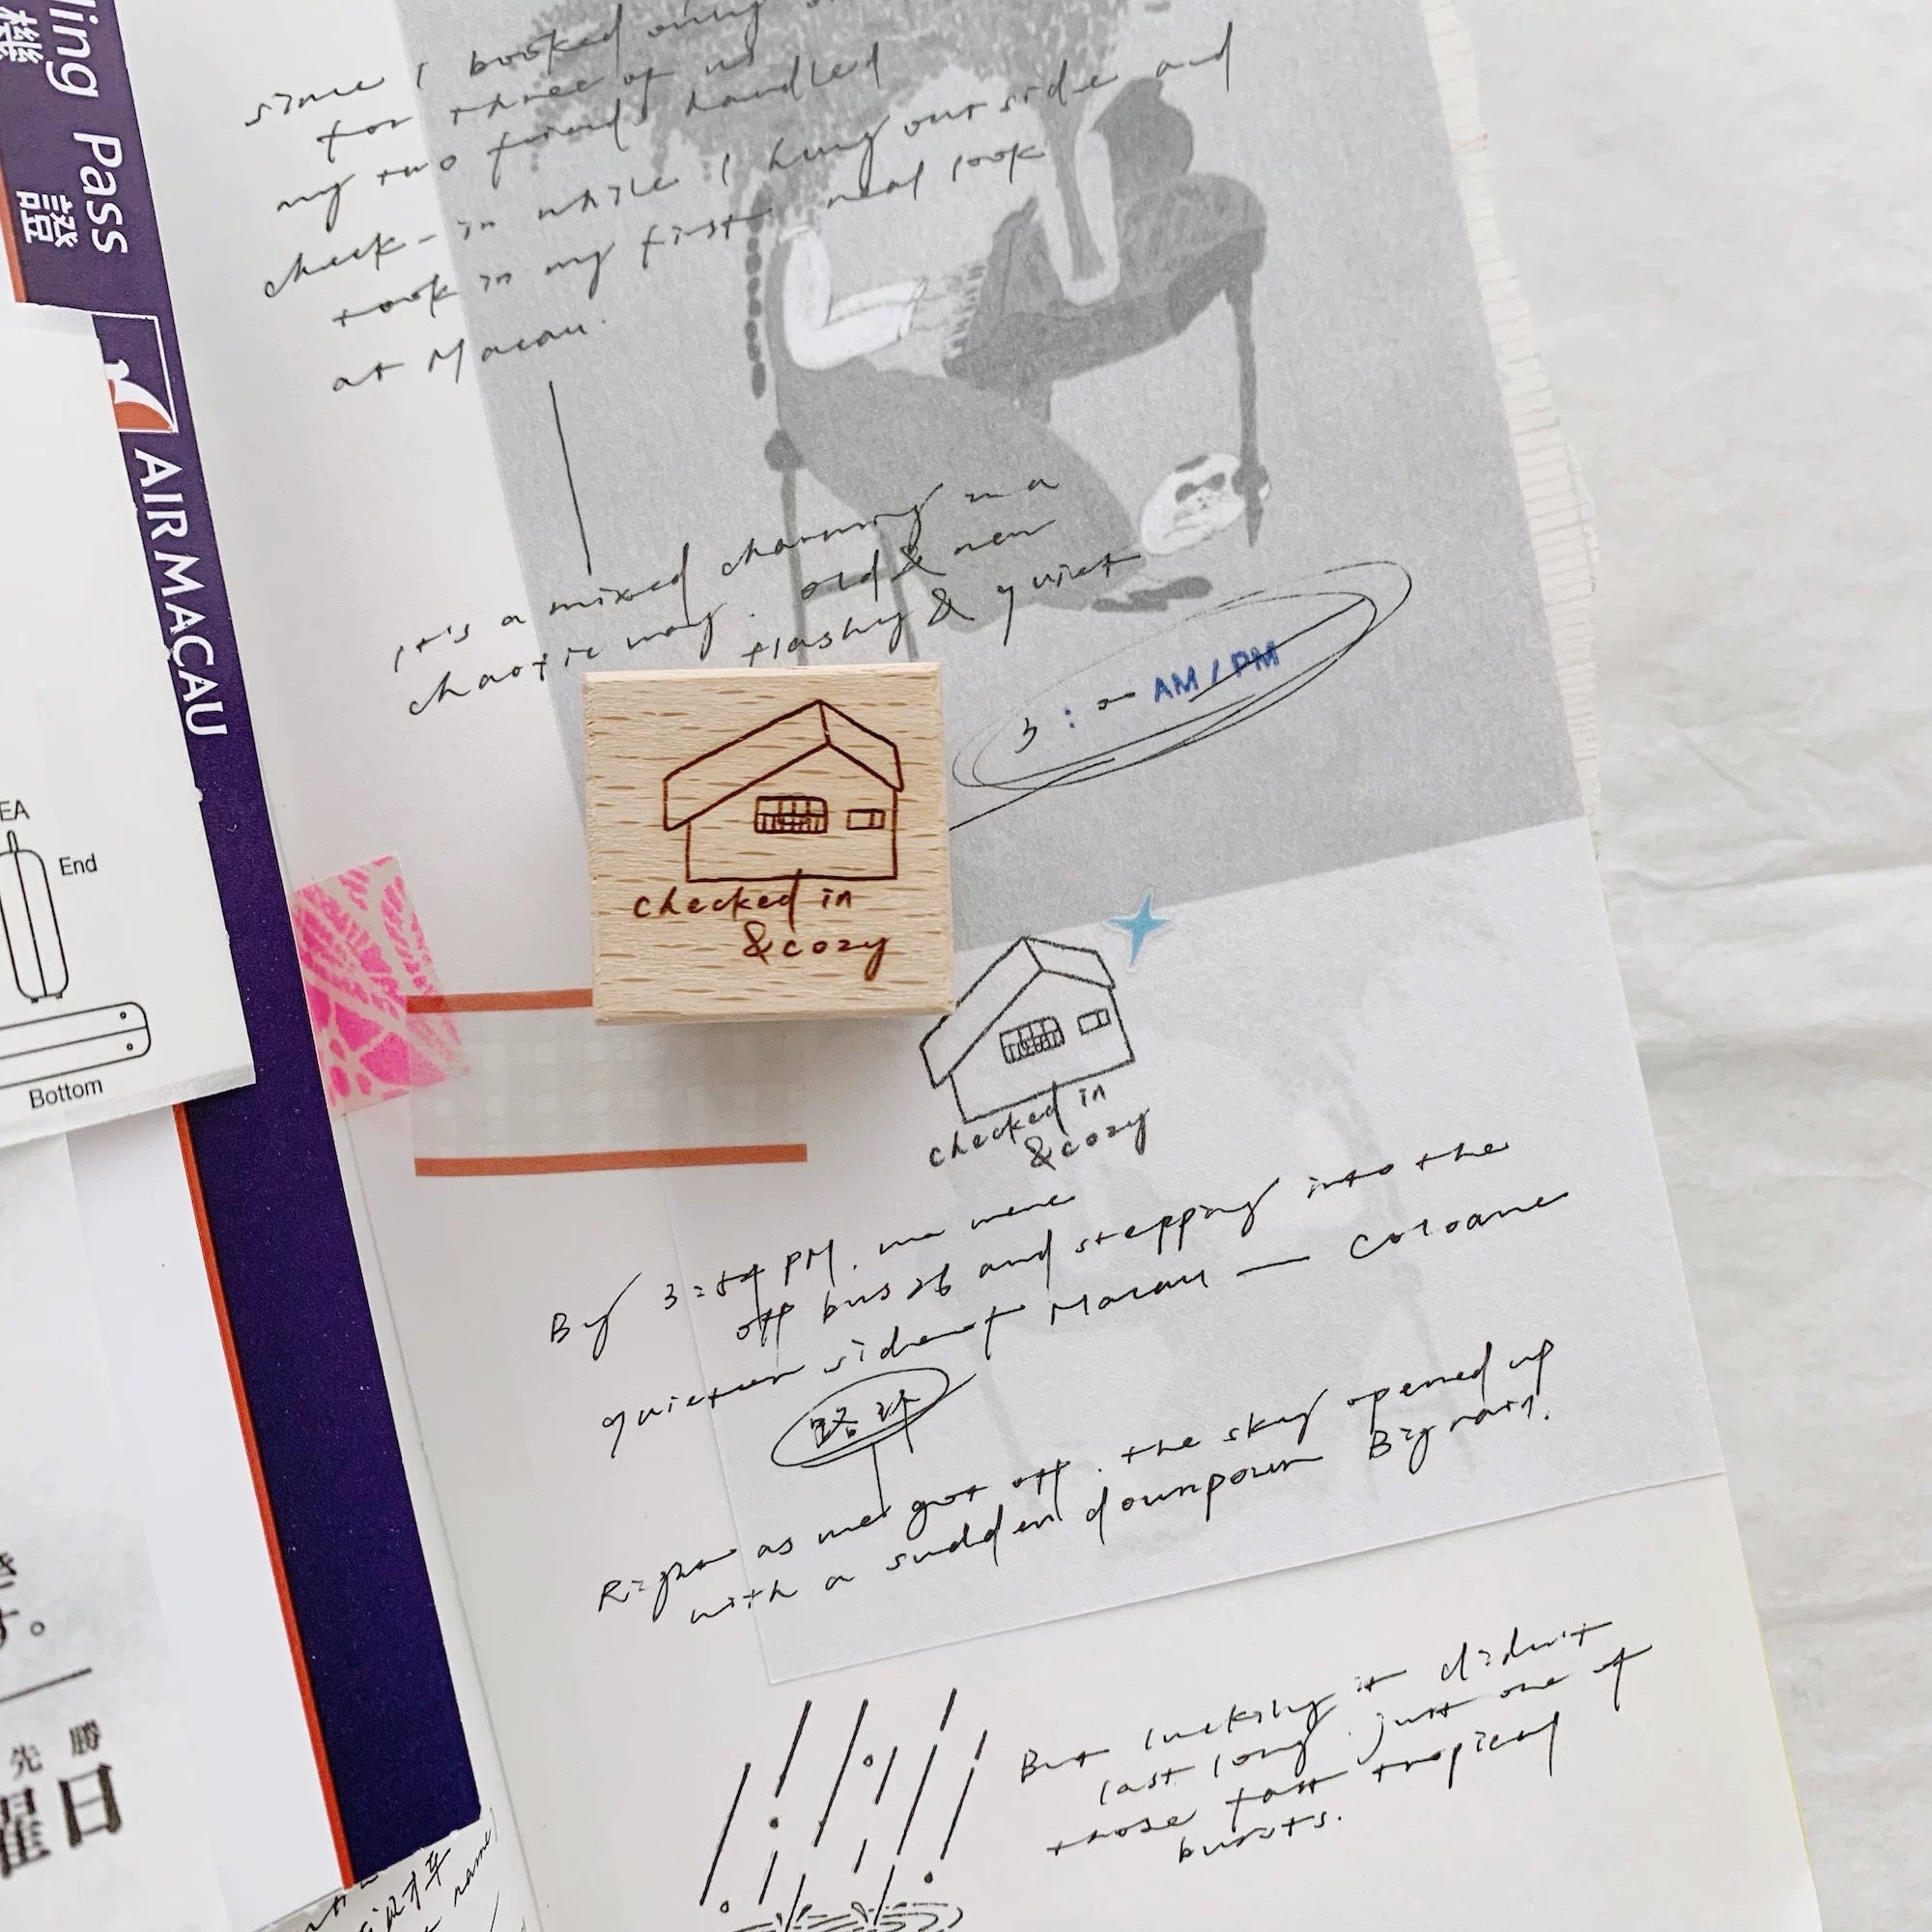 ling Pass
機
證
AIR MACAU
EA
End
Bottom
す。
先勝
日
since I booked
for three of us
my two friends handled
check-in while I hung outside and
took in my first real look
at Macau.
It's a mixed charming in a
chaotic way. old & new
flashy & quiet
3 : 00 AM / PM
checked in
& cozy
checked in
& cozy
By 3:54 PM, we were
off bus 26 and stepping into the
quieter side of Macau — Coloane
路环
Right as we got off, the sky opened up
with a sudden downpour Big rain.
But luckily it didn't
last long. just one of
those fast tropical
bursts.
name